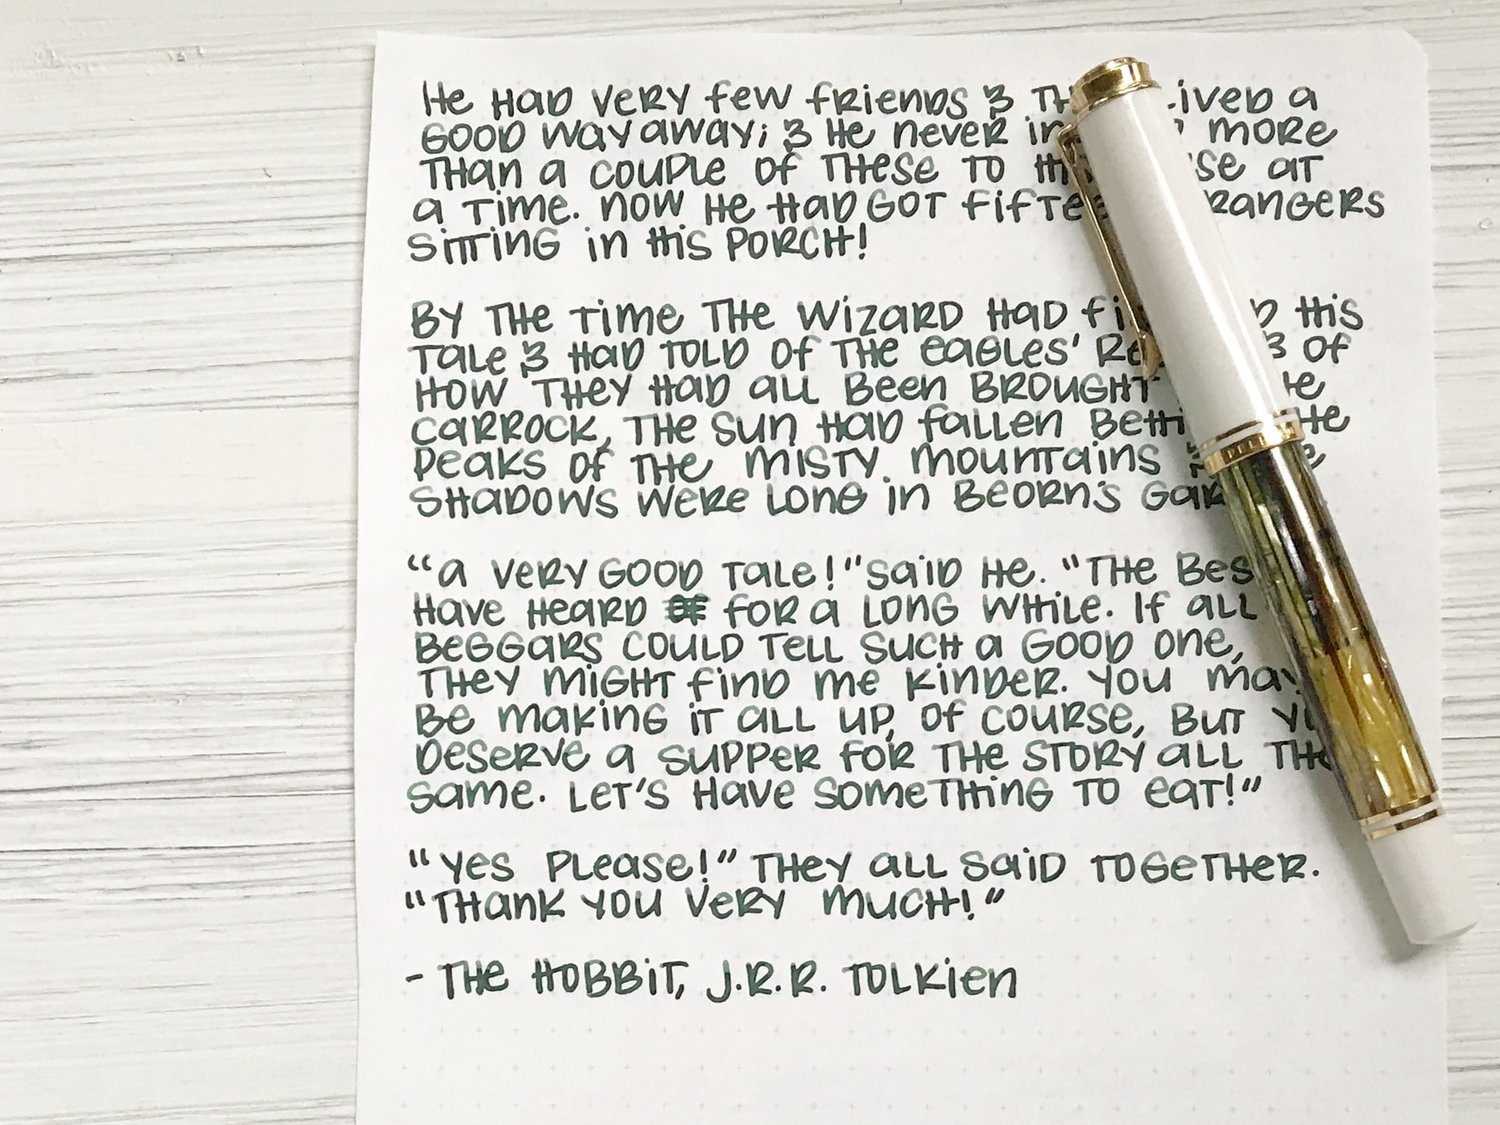 He had very few friends & th lived a
good way away; & he never in more
than a couple of these to hi se at
a time. now he had got fifte rangers
sitting in his porch!
By the time the wizard had fi d his
tale & had told of the eagles' re & of
how they had all been brought he
Carrock, the sun had fallen behi he
peaks of the misty mountains & e
shadows were long in Beorn's gar
"a very good tale!" said he. "The bes
have heard for a long while. If all
beggars could tell such a good one,
they might find me kinder. you may
be making it all up, of course, but y
deserve a supper for the story all the
same. Let's have something to eat!"
"yes please!" they all said together.
"Thank you very much!"
- The Hobbit, J.R.R. Tolkien